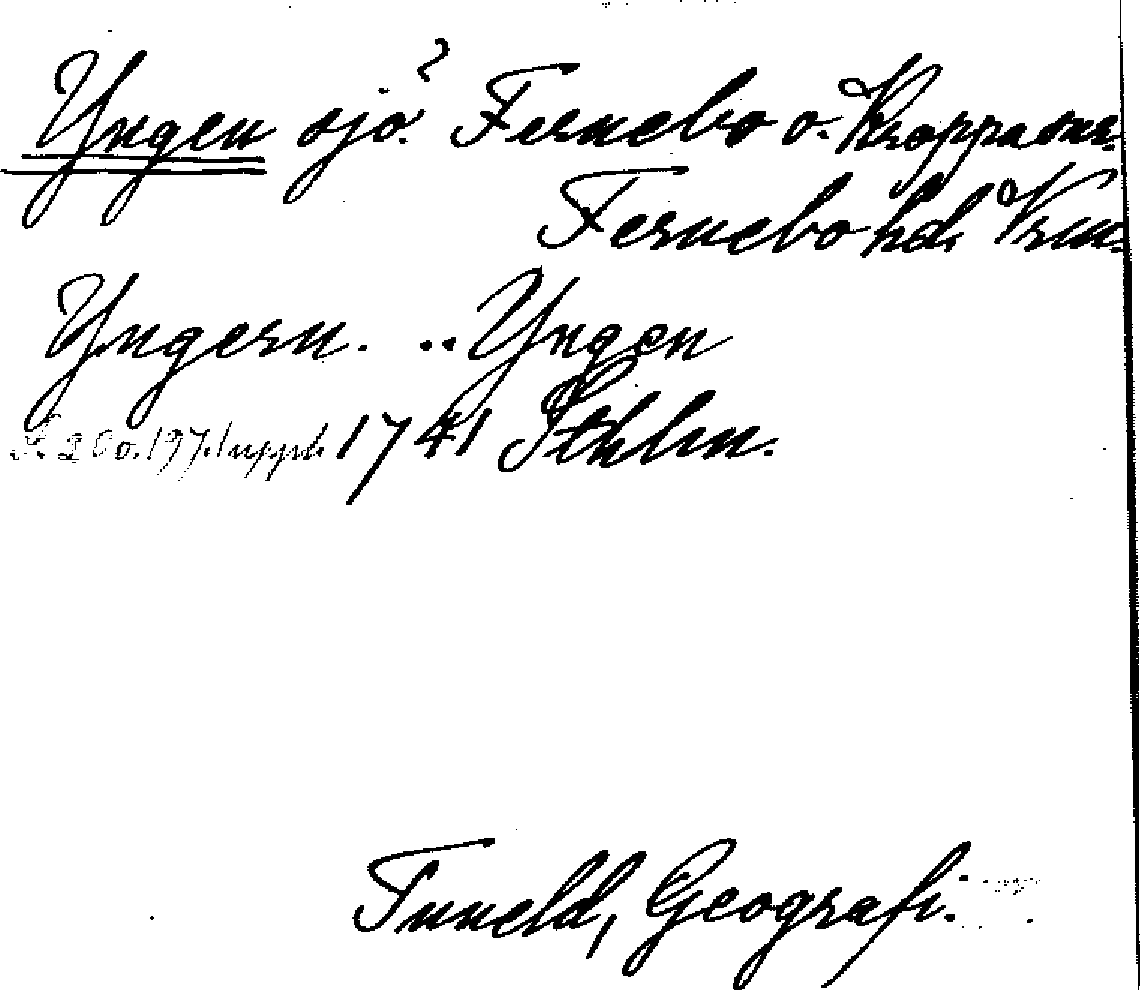 Yngen sjö? Fernebo o. Kroppa snr.
Fernebo hd. Vrm.
Yngern. .. Yngen
S. 260.197. suppl. 1741 Sthlm.
Tuneld, Geografi.